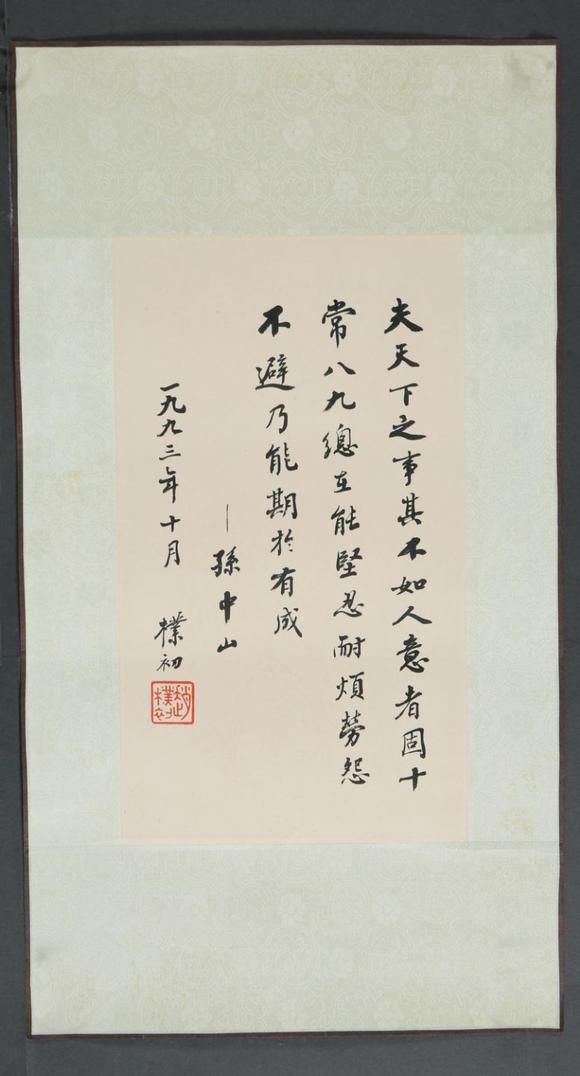 夫天下之事其不如人意者固十
常八九總在能堅忍耐煩勞怨
不避乃能期於有成
—孫中山
一九九三年十月
樸初
趙樸初